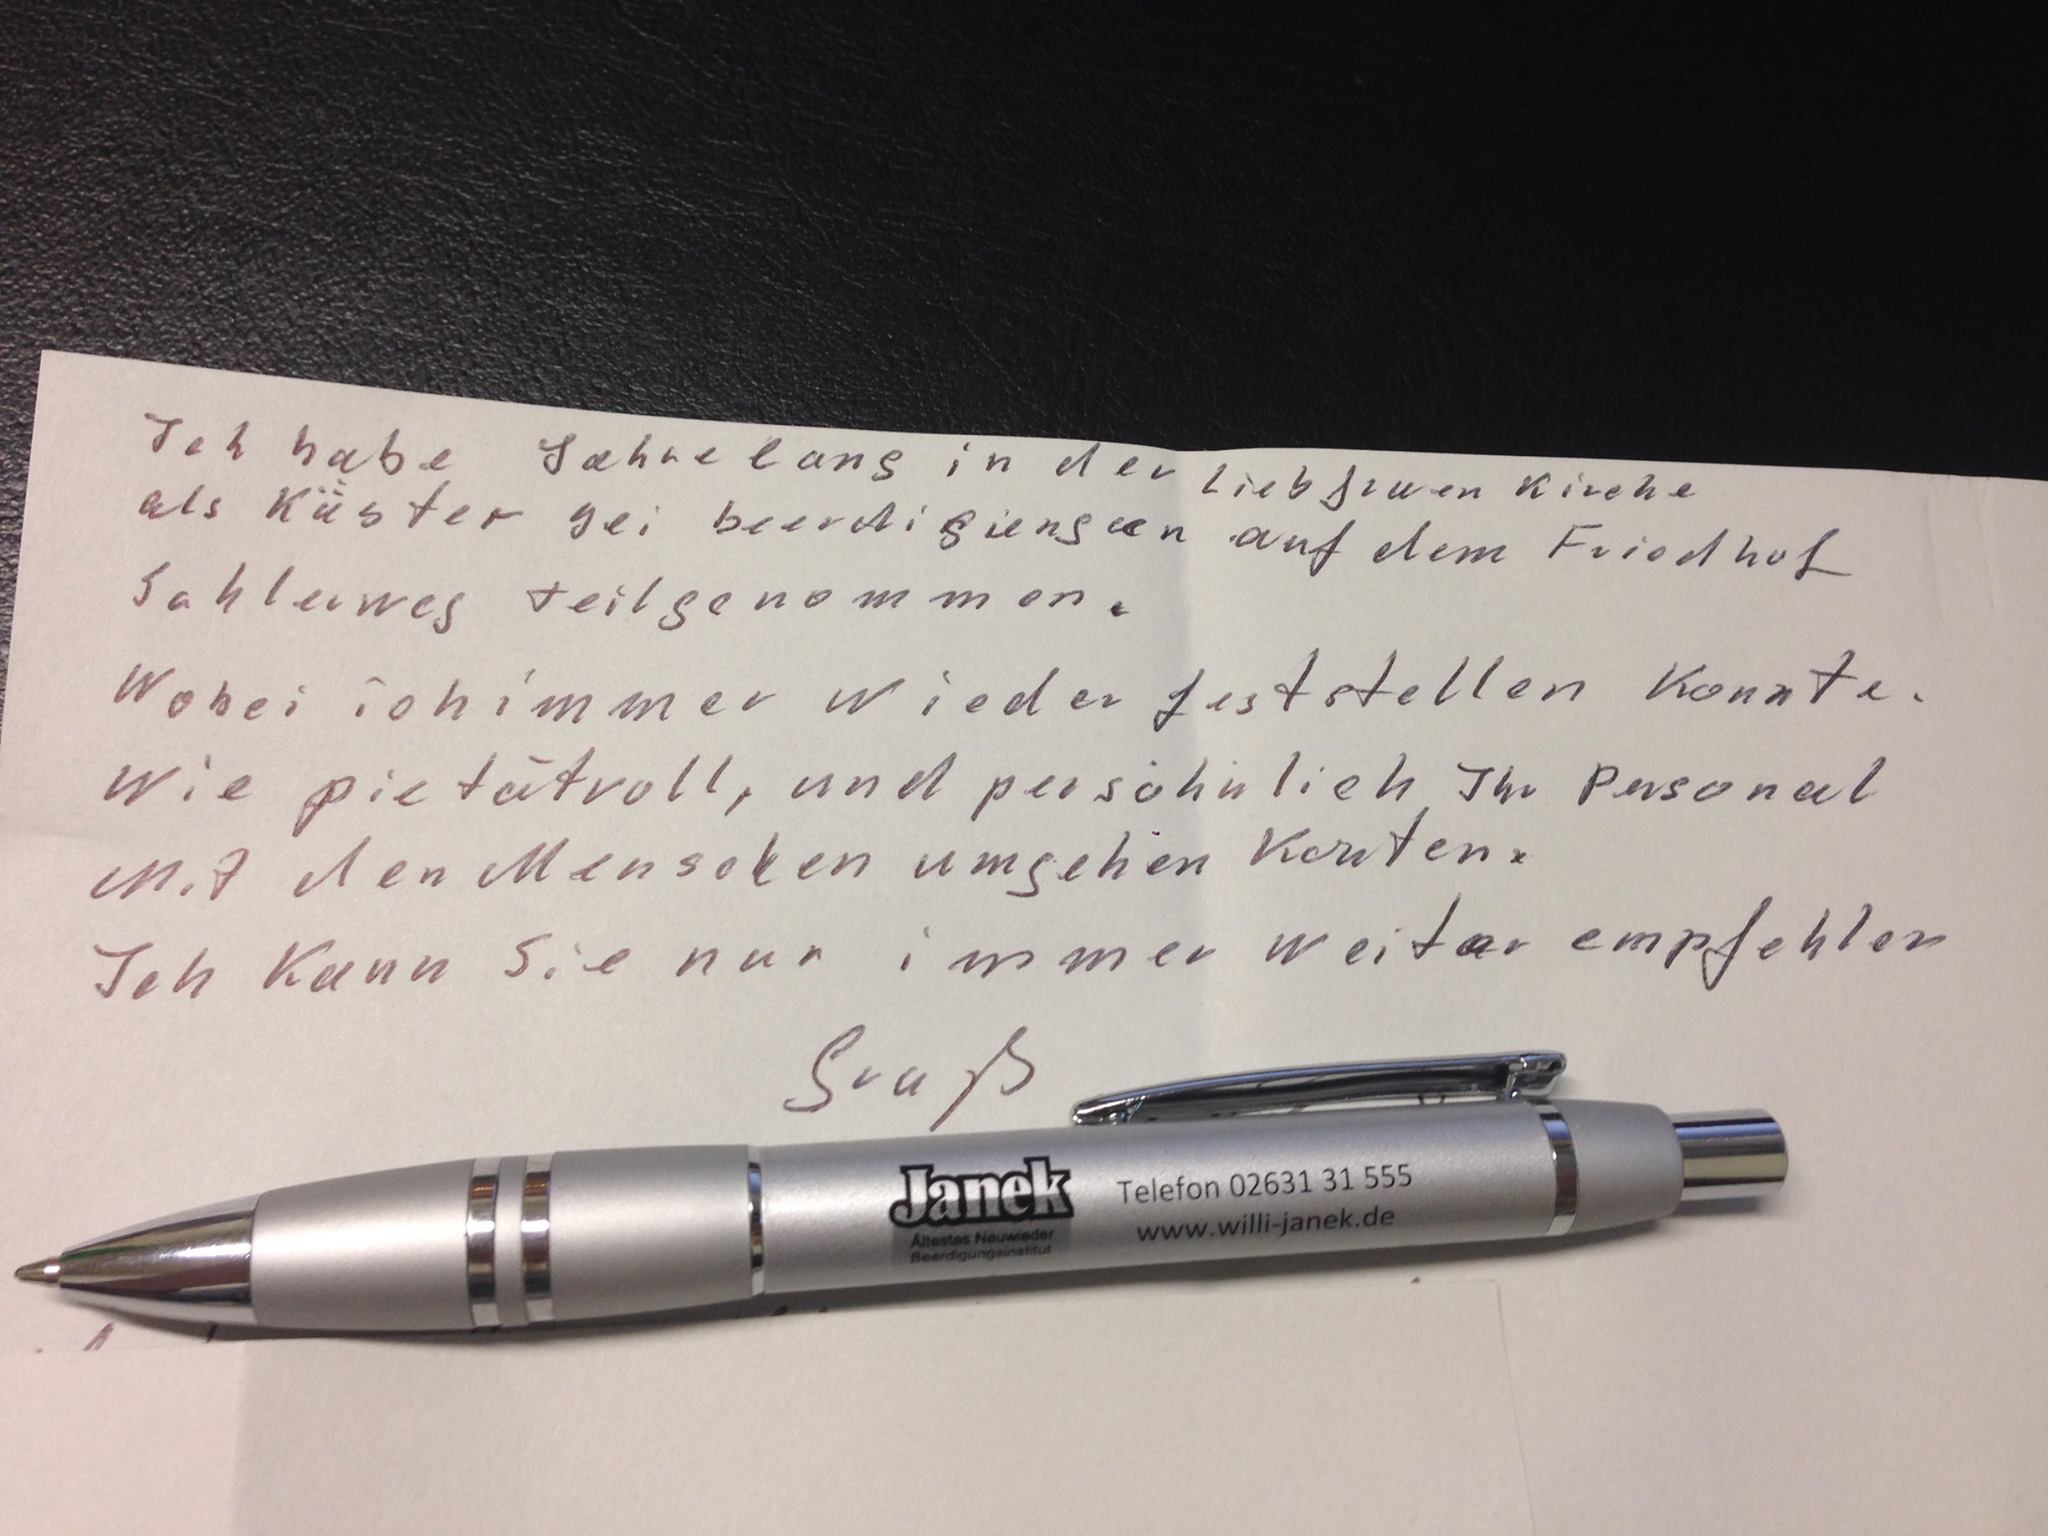 Ich habe Jahrelang in der Liebfrauen Kirche
als Küster bei beerdigiengen auf dem Friedhof
Sohlerweg teilgenommen.
Wobei ich immer wieder feststellen konnte.
Wie pietätvoll, und persöhnlich Ihr Personal
Mit den Menschen umgehen Konten.
Ich Kann Sie nur immer weiter empfehlen
Gruß
Janek Telefon 02631 31 555
Ältestes Neuwieder www.willi-janek.de
Beerdigungsinstitut